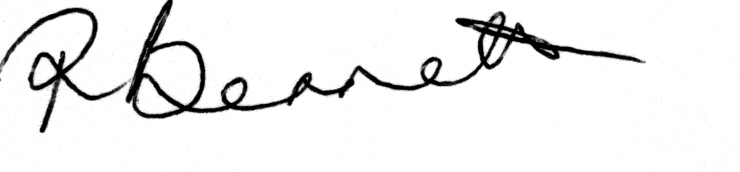 R Bennett